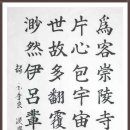 為客崇陵寺
片心包宇宙
世故多翻覆
渺然伊呂輩